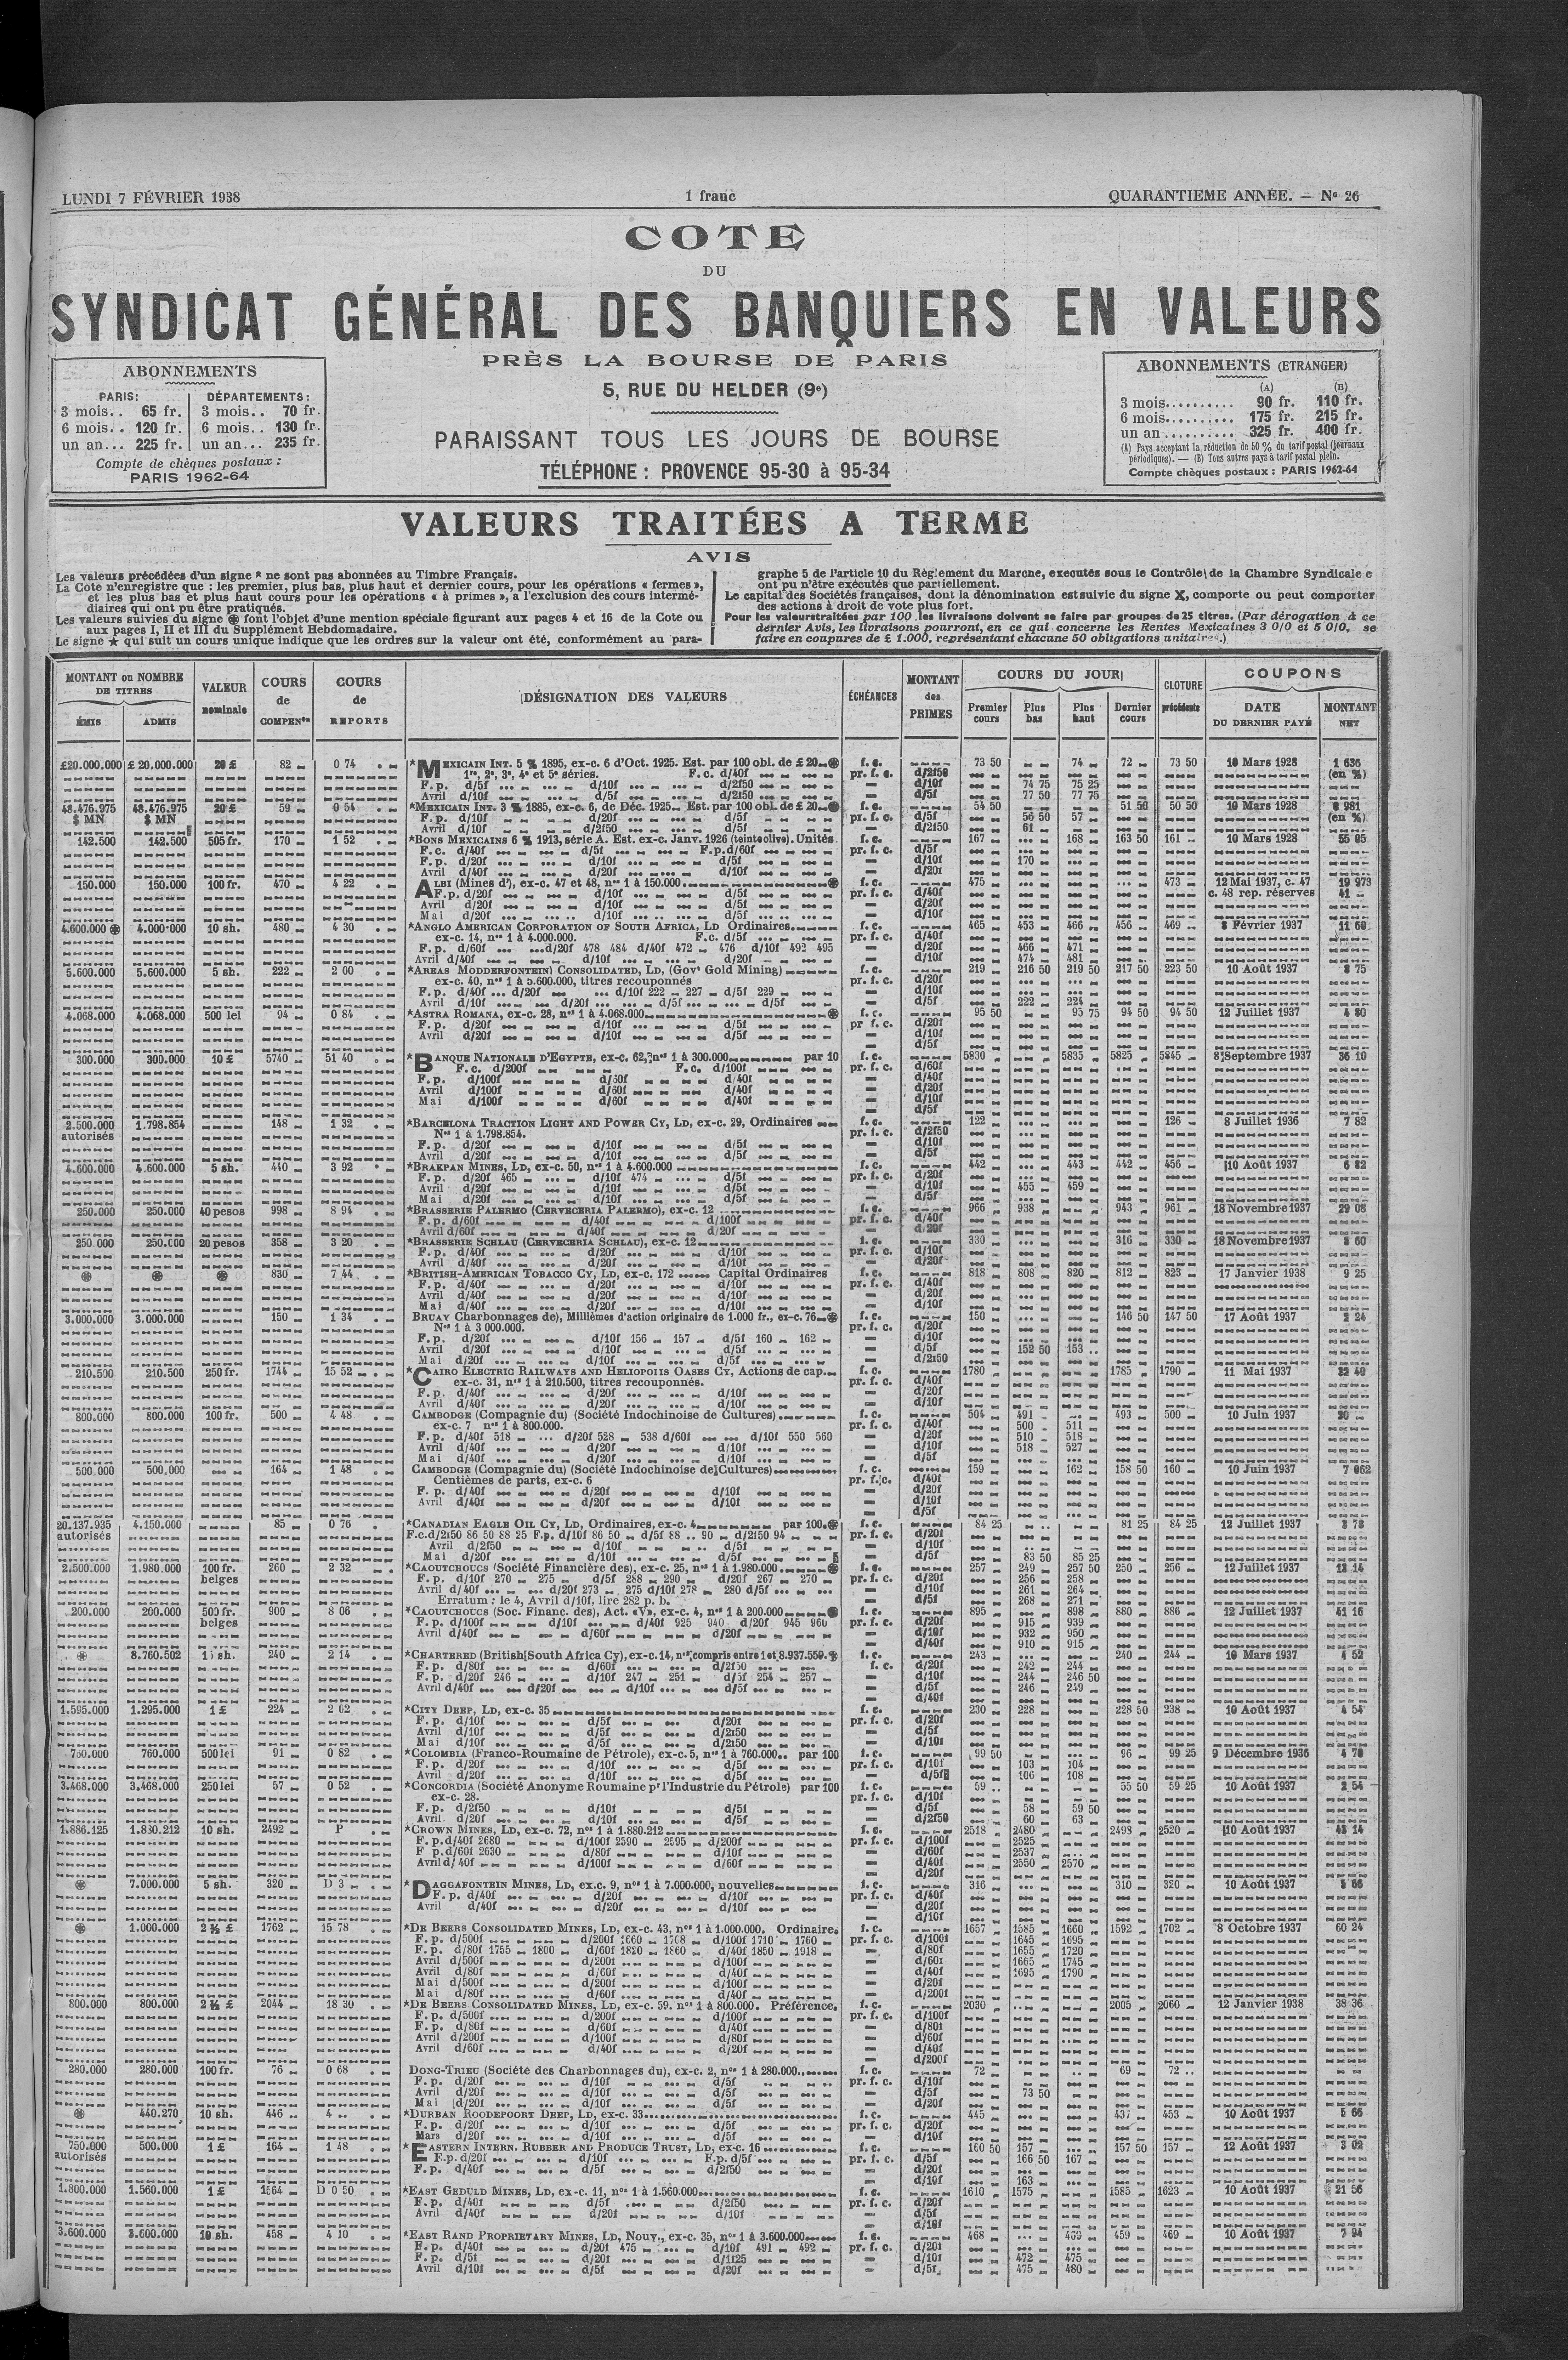 LUNDI 7 FÉVRIER 1938 1 franc QUARANTIEME ANNÉE. — No 26
COTE
DU
SYNDICAT GÉNÉRAL DES BANQUIERS EN VALEURS
PRÈS LA BOURSE DE PARIS
5, RUE DU HELDER (9e)
PARAISSANT TOUS LES JOURS DE BOURSE
TÉLÉPHONE : PROVENCE 95-30 à 95-34
ABONNEMENTS
PARIS: DÉPARTEMENTS:
3 mois.. 65 fr. 3 mois.. 70 fr.
6 mois.. 120 fr. 6 mois.. 130 fr.
un an... 225 fr. un an... 235 fr.
Compte de chèques postaux :
PARIS 1962-64
ABONNEMENTS (ETRANGER)
(A) (B)
3 mois.......... 90 fr. 110 fr.
6 mois.......... 175 fr. 215 fr.
un an .......... 325 fr. 400 fr.
(A) Pays acceptant la réduction de 50 % du tarif postal (journaux
périodiques). — (B) Tous autres pays à tarif postal plein.
Compte chèques postaux : PARIS 1962-64
VALEURS TRAITÉES A TERME
AVIS
Les valeurs précédées d'un signe * ne sont pas abonnées au Timbre Français.
La Cote n'enregistre que : les premier, plus bas, plus haut et dernier cours, pour les opérations « fermes »,
et les plus bas et plus haut cours pour les opérations « à primes », a l'exclusion des cours intermé-
diaires qui ont pu être pratiqués.
Les valeurs suivies du signe ⊛ font l'objet d'une mention spéciale figurant aux pages 4 et 16 de la Cote ou
aux pages I, II et III du Supplément Hebdomadaire.
Le signe ★ qui suit un cours unique indique que les ordres sur la valeur ont été, conformément au para-
graphe 5 de l'article 10 du Règlement du Marche, executés sous le Contrôle de la Chambre Syndicale e
ont pu n'être exécutés que partiellement.
Le capital des Sociétés françaises, dont la dénomination est suivie du signe X, comporte ou peut comporter
des actions à droit de vote plus fort.
Pour les valeurs traitées par 100, les livraisons doivent se faire par groupes de 25 titres. (Par dérogation à ce
dernier Avis, les livraisons pourront, en ce qui concerne les Rentes Mexicaines 3 0/0 et 5 0/0, se
faire en coupures de £ 1.000, représentant chacune 50 obligations unitaires.)
MONTANT ou NOMBRE DE TITRES
ÉMIS ADMIS
VALEUR nominale
COURS de COMPENon
COURS de REPORTS
DÉSIGNATION DES VALEURS
ÉCHÉANCES
MONTANT des PRIMES
COURS DU JOUR
Premier cours Plus bas Plus haut Dernier cours
CLOTURE précédente
COUPONS
DATE DU DERNIER PAYÉ MONTANT NET
£20.000.000 £ 20.000.000 20 £ 82 0 74 *MEXICAIN INT. 5 % 1895, ex-c. 6 d'Oct. 1925. Est. par 100 obl. de £ 20 ⊛ f. c. 73 50 74 72 73 50 10 Mars 1928 1 636
1re, 2e, 3e, 4e et 5e séries. F. c. d/40f pr. f. c. d/2f50 (en %)
F. p. d/5f d/10f d/2f50 d/10f 74 75 75 25
Avril d/10f d/5f d/2f50 d/5f 77 50 77 75
48.476.975 48.476.975 20 £ 59 0 54 *MEXICAIN INT. 3 % 1885, ex-c. 6, de Déc. 1925 Est. par 100 obl. de £ 20 ⊛ f. c. 54 50 51 50 50 50 10 Mars 1928
$ MN $ MN F. p. d/10f d/20f d/5f pr. f. c. d/5f 56 50 57 (en %)
Avril d/10f d/2f50 d/5f d/2f50 61
142.500 142.500 505 fr. 170 1 52 *BONS MEXICAINS 6 % 1913, série A. Est. ex-c. Janv. 1926 (teinte olive). Unités f. c. 167 168 163 50 161 10 Mars 1928 55 05
F. c. d/40f d/5f F.p. d/60f pr. f. c. d/5f
F. p. d/20f d/10f d/5f d/10f 170
Avril d/40f d/20f d/10f d/20f
150.000 150.000 100 fr. 470 4 22 ALBI (Mines d'), ex-c. 47 et 48, nos 1 à 150.000 ⊛ f. c. 475 473 12 Mai 1937, c. 47 19 973
F. p. d/20f d/10f d/5f pr. f. c. d/40f c. 48 rep. réserves 41
Avril d/20f d/10f d/5f d/20f
Mai d/20f d/10f d/5f d/10f
4.600.000 ⊛ 4.000.000 10 sh. 480 4 30 *ANGLO AMERICAN CORPORATION OF SOUTH AFRICA, LD Ordinaires f. c. 465 453 466 456 469 8 Février 1937 11 60
ex-c. 14, nos 1 à 4.000.000. F.c. d/5f pr. f. c. d/40f
F. p. d/60f d/20f 478 484 d/40f 472 476 d/10f 492 495 d/20f 466 471
Avril d/40f d/10f d/20f d/10f 474 481
5.600.000 5.600.000 5 sh. 222 2 00 *AREAS MODDERFONTEIN) CONSOLIDATED, LD, (Govt Gold Mining) f. c. 219 216 50 219 50 217 50 223 50 10 Août 1937 8 75
ex-c. 40, nos 1 à 5.600.000, titres recouponnés pr. f. c. d/20f
F. p. d/40f d/20f d/10f 222 227 d/5f 229 d/10f
Avril d/10f d/20f d/5f d/5f d/5f 222 224
4.068.000 4.068.000 500 lei 94 0 84 *ASTRA ROMANA, ex-c. 28, nos 1 à 4.068.000 ⊛ f. c. 95 50 95 75 94 50 94 50 12 Juillet 1937 4 80
F. p. d/20f d/10f d/5f pr f. c. d/20f
Avril d/20f d/10f d/5f d/10f
d/5f
300.000 300.000 10 £ 5740 51 40 *BANQUE NATIONALE D'EGYPTE, ex-c. 62, nos 1 à 300.000 par 10 f. c. 5830 5835 5825 5845 8 Septembre 1937 36 10
F. c. d/200f F. c. d/100f pr. f. c. d/60f
F. p. d/100f d/50f d/40f d/40f
Avril d/100f d/60f d/40f d/20f
Mai d/100f d/60f d/40f d/10f
d/5f
2.500.000 1.798.854 148 1 32 *BARCELONA TRACTION LIGHT AND POWER CY, LD, ex-c. 29, Ordinaires f. c. 122 126 8 Juillet 1936 7 82
autorisés Nos 1 à 1.798.854. pr. f. c. d/2f50
F. p. d/20f d/10f d/5f d/10f
Avril d/20f d/10f d/5f d/5f
4.600.000 4.600.000 5 sh. 440 3 92 *BRAKPAN MINES, LD, ex-c. 50, nos 1 à 4.600.000 f. c. 442 443 442 456 10 Août 1937 6 82
F. p. d/20f 465 d/10f 474 d/5f pr. f. c. d/20f
Avril d/20f d/10f d/5f d/10f 455 459
Mai d/20f d/10f d/5f d/5f
250.000 250.000 40 pesos 998 8 94 *BRASSERIE PALERMO (CERVECERIA PALERMO), ex-c. 12 f. c. 966 938 943 961 18 Novembre 1937 29 08
F. p. d/60f d/40f d/100f pr. f. c. d/40f
Avril d/60f d/40f d/20f d/20f
250 000 250.000 20 pesos 358 3 20 *BRASSERIE SCHLAU (CERVECERIA SCHLAU), ex-c. 12 f. c. 330 316 330 18 Novembre 1937 8 60
F. p. d/40f d/20f d/10f pr. f. c. d/10f
Avril d/40f d/20f d/10f d/20f
⊛ ⊛ ⊛ 830 7 44 *BRITISH-AMERICAN TOBACCO CY, LD, ex-c. 172 Capital Ordinaires f. c. 818 808 820 812 823 17 Janvier 1938 9 25
F. p. d/40f d/20f d/10f pr. f. c. d/40f
Avril d/40f d/20f d/10f d/20f
Mai d/40f d/20f d/10f d/10f
3.000.000 3.000.000 150 1 34 BRUAY Charbonnages de), Millièmes d'action originaire de 1.000 fr., ex-c. 76 ⊛ f. c. 150 146 50 147 50 17 Août 1937 2 24
Nos 1 à 3 000.000. pr. f. c. d/20f
F. p. d/20f d/10f 156 157 d/5f 160 162 d/10f
Avril d/20f d/10f d/5f d/5f 152 50 153
Mai d/20f d/10f d/5f d/2f50
210.500 210.500 250 fr. 1744 15 52 *CAIRO ELECTRIC RAILWAYS AND HELIOPOLIS OASES CY, Actions de cap. f. c. 1780 1785 1790 11 Mai 1937 32 40
ex-c. 31, nos 1 à 210.500, titres recouponnés. pr. f. c. d/40f
F. p. d/40f d/20f d/10f d/20f
Avril d/40f d/20f d/10f d/10f
800.000 800.000 100 fr. 500 4 48 CAMBODGE (Compagnie du) (Société Indochinoise de Cultures) f. c. 504 491 493 500 10 Juin 1937 20
ex-c. 7 nos 1 à 800.000. pr. f. c. d/40f 500 511
F. p. d/40f 518 d/20f 528 538 d/60f d/10f 550 560 d/20f 510 518
Avril d/40f d/20f d/10f d/10f 518 527
Mai d/40f d/20f d/10f d/5f
500.000 500,000 164 1 48 CAMBODGE (Compagnie du) (Société Indochinoise de Cultures) f. c. 159 162 158 50 160 10 Juin 1937 7 062
Centièmes de parts, ex-c. 6 pr. f. c. d/40f
F. p. d/40f d/20f d/10f d/20f
Avril d/40f d/20f d/10f d/10f
d/5f
20.137.935 4.150.000 85 0 76 *CANADIAN EAGLE OIL CY, LD, Ordinaires, ex-c. 4 par 100 ⊛ f. c. 84 25 81 25 84 25 12 Juillet 1937 3 78
autorisés F.c. d/2f50 86 50 88 25 F.p. d/10f 86 50 d/5f 88 90 d/2f50 94 pr. f. c. d/20f
Avril d/2f50 d/10f d/5f d/10f
Mai d/20f d/10f d/5f d/5f 83 50 85 25
2.500.000 1.980.000 100 fr. 260 2 32 *CAOUTCHOUCS (Société Financière des), ex-c. 25, nos 1 à 1.980.000 ⊛ f. c. 257 249 257 50 250 256 12 Juillet 1937 12 14
belges F. p. d/10f 270 275 d/5f 288 290 d/20f 267 270 pr. f. c. d/20f 256 258
Avril d/40f d/20f 273 275 d/10f 278 280 d/5f d/10f 261 264
Erratum : le 4, Avril d/10f, lire 282 p. b. d/5f 268 271
200.000 200.000 500 fr. 900 8 06 *CAOUTCHOUCS (Soc. Financ. des), Act. «V», ex-c. 4, nos 1 à 200.000 f. c. 895 898 880 886 12 Juillet 1937 41 16
belges F. p. d/100f d/10f d/40f 925 940 d/20f 945 960 pr. f. c. d/20f 915 939
Avril d/40f d/60f d/20f d/10f 932 950
d/40f 910 915
⊛ 8.760.502 15 sh. 240 2 14 *CHARTERED (British South Africa Cy), ex-c. 14, nos compris entre 1 et 8.937.559 f. c. 243 240 244 10 Mars 1937 4 52
F. p. d/80f d/60f d/2f50 f. c. d/20f 242 244
F. p. d/20f 246 d/10f 247 251 d/5f 254 257 d/10f 244 246 50
Avril d/40f d/20f d/10f d/5f d/5f 246 249
d/40f
1.595.000 1.295.000 1 £ 224 2 02 *CITY DEEP, LD, ex-c. 35 f. c. 230 228 228 50 238 10 Août 1937 4 54
F. p. d/10f d/5f d/20f pr. f. c. d/20f
Avril d/10f d/5f d/2f50 d/5f
Mai d/10f d/5f d/2f50 d/10f
750.000 760.000 500 lei 91 0 82 *COLOMBIA (Franco-Roumaine de Pétrole), ex-c. 5, nos 1 à 760.000 par 100 f. c. 99 50 96 99 25 9 Décembre 1936 4 70
F. p. d/20f d/10f d/5f pr. f. c. d/10f 103 104
Avril d/20f d/10f d/5f d/5f 106 108
3.468.000 3.468.000 250 lei 57 0 52 *CONCORDIA (Société Anonyme Roumaine pr l'Industrie du Pétrole) par 100 f. c. 59 55 50 59 25 10 Août 1937 2 54
ex-c. 28. pr. f. c. d/10f
F. p. d/2f50 d/10f d/5f d/5f 58 59 50
Avril d/20f d/10f d/5f d/2f50 60 63
1.886.125 1.880.212 10 sh. 2492 P *CROWN MINES, LD, ex-c. 72, nos 1 à 1.880.212 f. c. 2518 2480 2498 2520 10 Août 1937 43 14
F. p. d/40f 2680 d/100f 2590 2595 d/200f pr. f. c. d/100f 2525
F p. d/60f 2630 d/80f d/10f d/60f 2537
Avril d/40f d/100f d/60f d/40f 2550 2570
d/20f
⊛ 7.000.000 5 sh. 320 D 3 *DAGGAFONTEIN MINES, LD, ex-c. 9, nos 1 à 7.000.000, nouvelles f. c. 316 310 320 10 Août 1937 5 66
F. p. d/40f d/20f d/10f pr. f. c. d/40f
Avril d/40f d/20f d/10f d/20f
d/10f
⊛ 1.000.000 2 ½ £ 1762 15 78 *DE BEERS CONSOLIDATED MINES, LD, ex-c. 43, nos 1 à 1.000.000. Ordinaire f. c. 1657 1585 1660 1592 1702 8 Octobre 1937 60 24
F. p. d/500f d/200f 1660 1708 d/100f 1710 1760 pr. f. c. d/100f 1645 1695
F. p. d/80f 1755 1800 d/60f 1820 1860 d/40f 1850 1918 d/80f 1655 1720
Avril d/500f d/200f d/100f d/60f 1665 1745
Avril d/80f d/60f d/40f d/40f 1695 1790
Mai d/500f d/200f d/100f d/20f
Mai d/80f d/60f d/40f d/200f
800.000 800.000 2 ½ £ 2044 18 30 *DE BEERS CONSOLIDATED MINES, LD, ex-c. 59. nos 1 à 800.000. Préférence f. c. 2030 2005 2060 12 Janvier 1938 38 36
F. p. d/500f d/200f d/100f pr. f. c. d/100f
F. p. d/80f d/60f d/40f d/80f
Avril d/200f d/100f d/80f d/60f
Avril d/60f d/40f d/20f d/40f
d/200f
280.000 280.000 100 fr. 76 0 68 DONG-TRIEU (Société des Charbonnages du), ex-c. 2, nos 1 à 280.000 f. c. 72 69 72 
F. p. d/20f d/10f d/5f pr. f. c. d/10f
Avril d/20f d/10f d/5f d/5f 73 50
Mai d/20f d/10f d/5f d/20f
⊛ 440.270 10 sh. 446 4 *DURBAN ROODEPOORT DEEP, LD, ex-c. 33 f. c. 445 437 453 10 Août 1937 5 66
F. p. d/20f d/10f d/5f pr. f. c. d/20f
Mars d/20f d/10f d/5f d/10f
750.000 500.000 1 £ 164 1 48 *EASTERN INTERN. RUBBER AND PRODUCE TRUST, LD, ex-c. 16 f. c. 160 50 157 157 50 157 12 Août 1937 3 02
autorisés F.p. d/20f d/10f F.p. d/5f pr. f. c. d/5f 166 50 167
F. p. d/40f d/5f d/2f50 d/20f
d/10f 163
1.800.000 1.560.000 1 £ 1564 D 0 50 *EAST GEDULD MINES, LD, ex-c. 11, nos 1 à 1.560.000 f. c. 1610 1575 1585 1623 10 Août 1937 21 56
F. p. d/40f d/5f d/2f50 pr. f. c. d/20f
Avril d/40f d/20f d/10f d/5f
d/10f
3.600.000 3.600.000 10 sh. 458 4 10 *EAST RAND PROPRIETARY MINES, LD, Nouv., ex-c. 35, nos 1 à 3.600.000 f. c. 468 469 459 469 10 Août 1937 7 94
F. p. d/40f d/20f 475 d/10f 491 492 pr. f. c. d/20f
F. p. d/5f d/20f d/1f25 d/10f 472 475
Avril d/10f d/5f d/20f d/5f 475 480